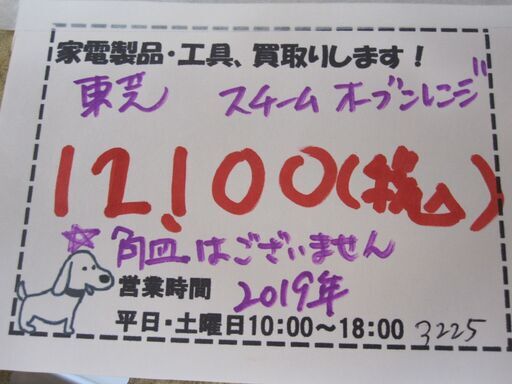 家電製品・工具、買取りします!
東芝 スチームオーブンレンジ
12,100(税込)
☆角皿はございません
営業時間 2019年
平日・土曜日10:00～18:00 3225